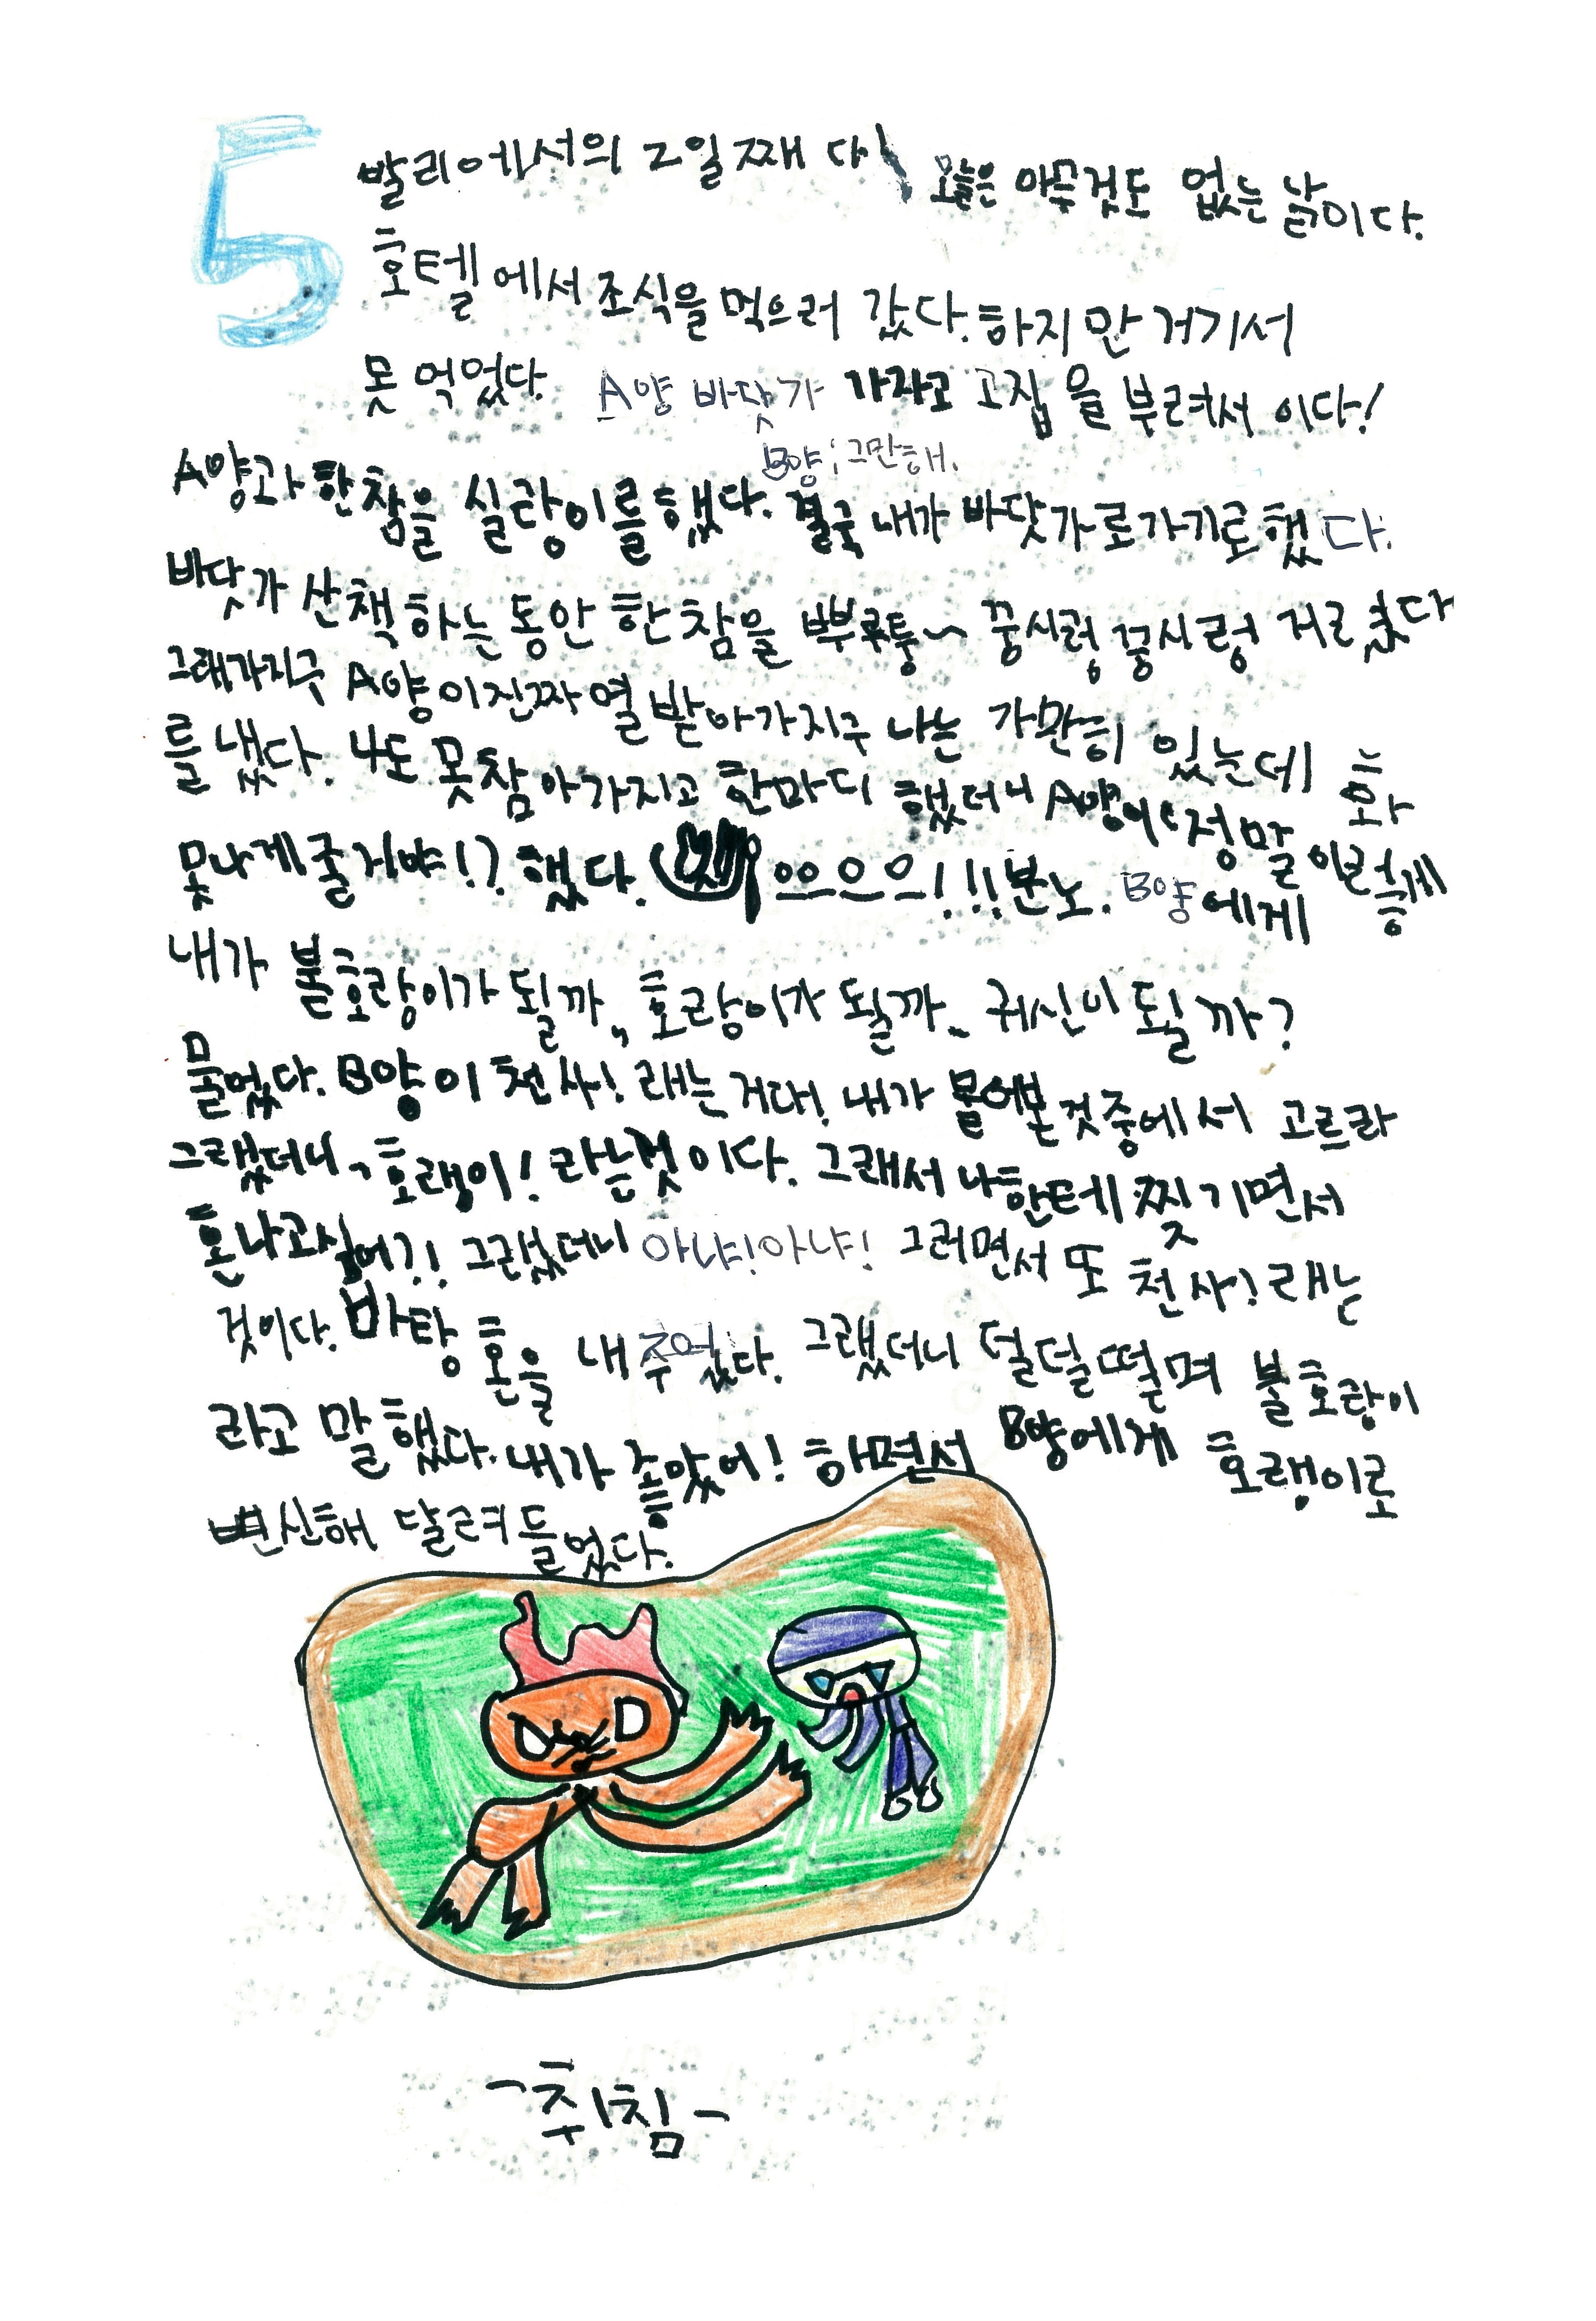 5
발리에서의 2일째 다! 오늘은 아무것도 없는 낡이다.
호텔에서 조식을 먹으러 갔다. 하지만 거기서
못 먹었다. A양 바닷가 가자고 고집을 부려서 이다!
B양: 그만해.
A양과 한참을 실랑이를 했다. 결국 내가 바닷가로 가기로 했다.
바닷가 산책 하는 동안 한참을 뿌루퉁~ 꿍시렁 꿍시렁 거렸다
그래가지구 A양이 진짜 열받아가지구 나는 가만히 있는데 화
를 냈다. 나도 못참아가지고 한마디 했더니 A양이 정말 이렇게
못나게 굴거야!? 했다. 으으으으!!! 분노. B양에게
내가 불호랑이가 될까, 호랑이가 될까, 귀신이 될까?
물었다. B양이 천사! 래는 거다! 내가 물어본 것중에서 고르라
그랬더니, 호랭이! 라는 것이다. 그래서 나한테 찢기면서
혼나고싶어?! 그랬더니 아냐! 아냐! 그러면서 또 천사! 래는
것이다. 바탕 혼을 내 주었다. 그랬더니 덜덜 떨며 불호랑이
라고 말했다. 내가 좋았어! 하면서 B양에게 호랭이로
변신해 달려들었다.
-취침-